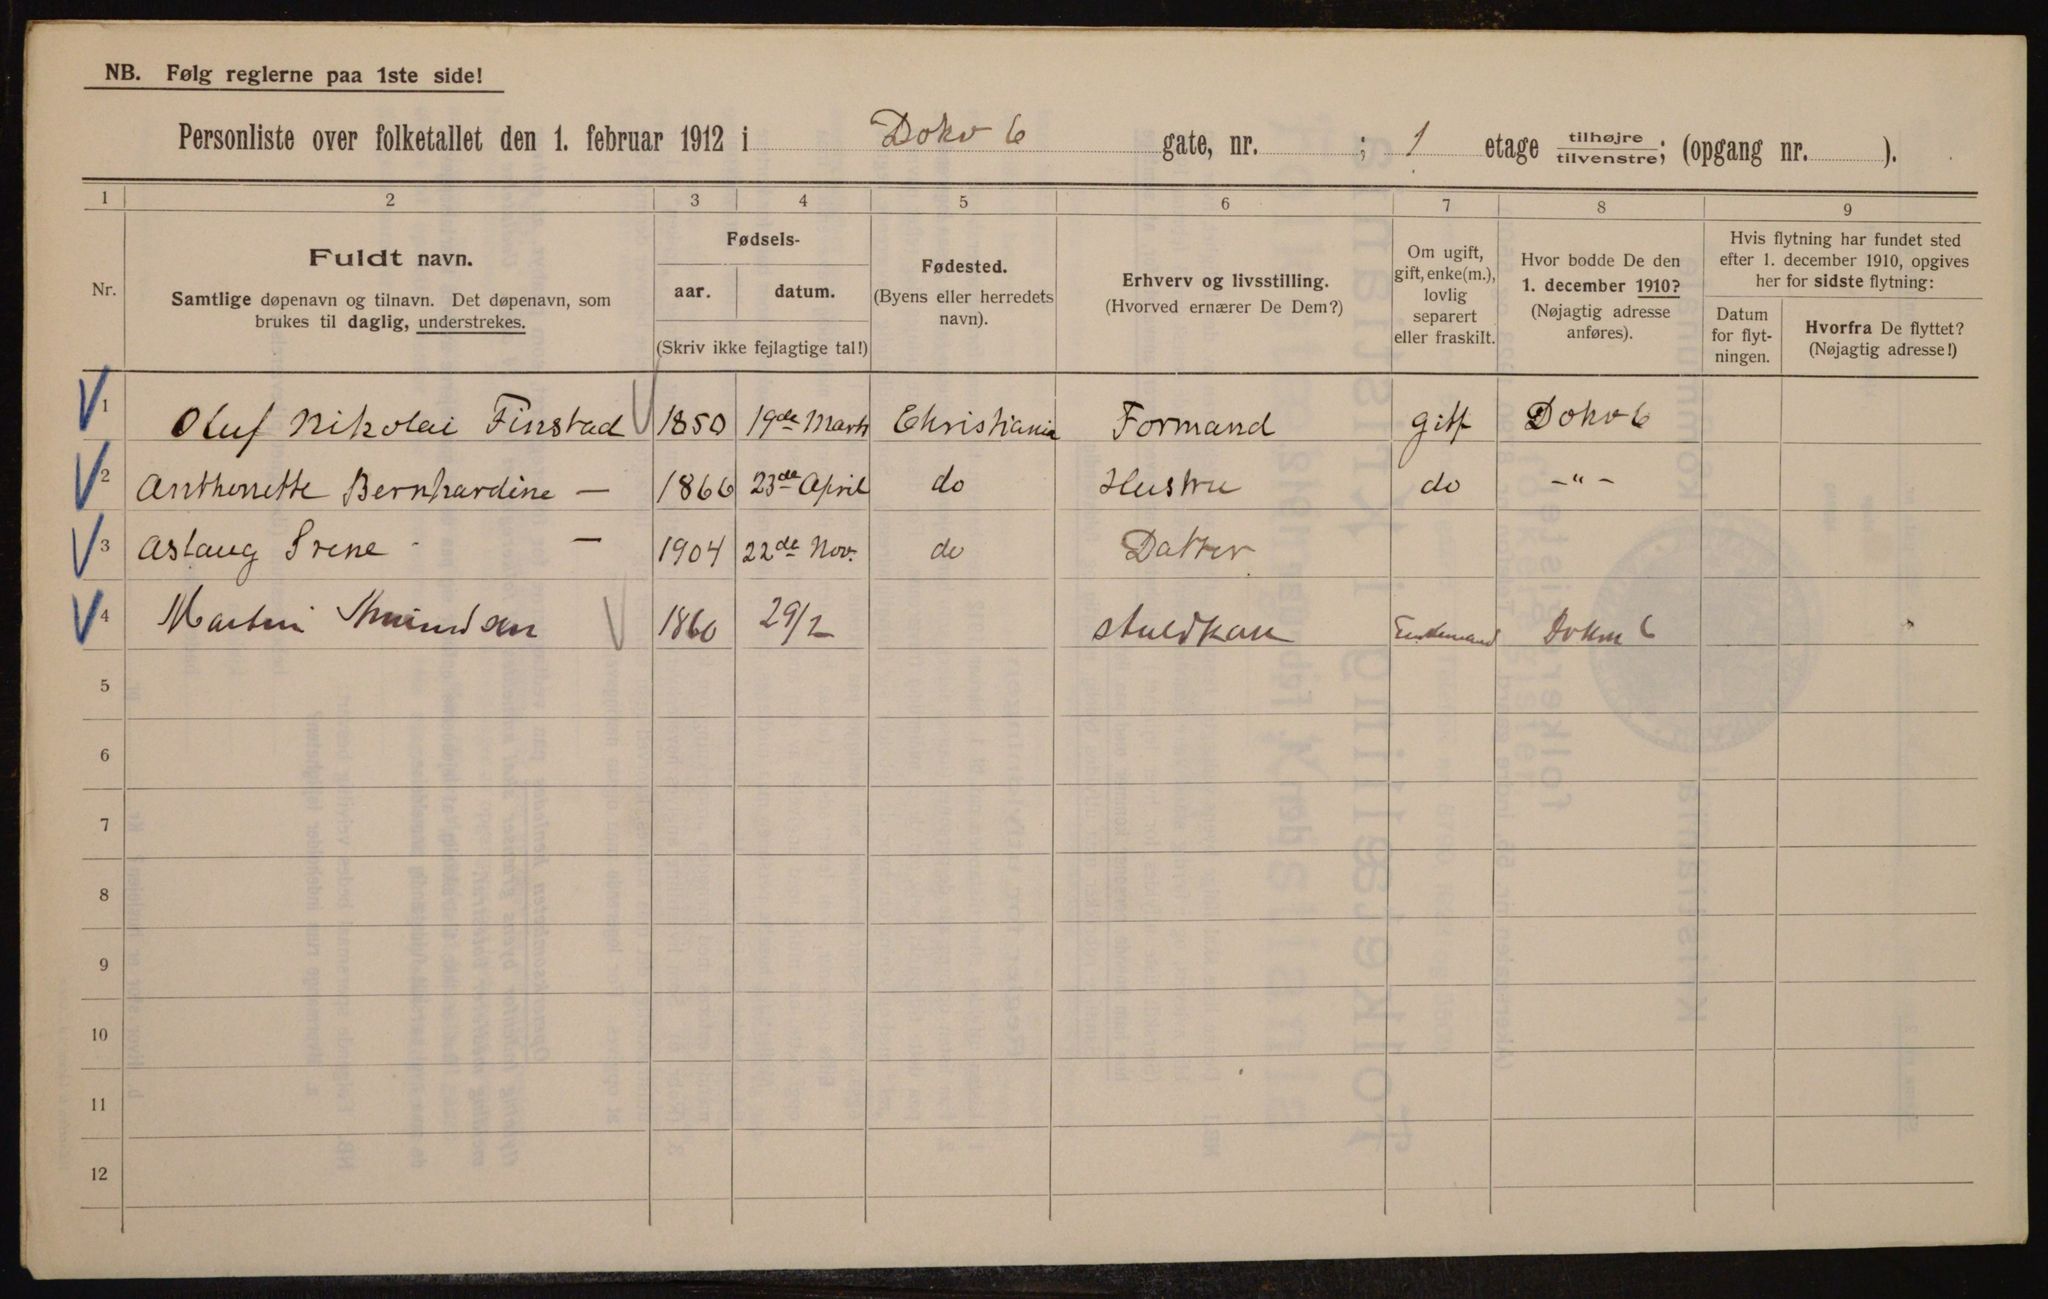 NB. Følg reglerne paa 1ste side!
Personliste over folketallet den 1. februar 1912 i Dokv 6 gate, nr. ; 1 etage tilhøjre tilvenstre; (opgang nr. ).
1 2 3 4 5 6 7 8 9
Nr.
Fuldt navn.
Samtlige døpenavn og tilnavn. Det døpenavn, som
brukes til daglig, understrekes.
Fødsels-
aar. datum.
(Skriv ikke fejlagtige tal!)
Fødested.
(Byens eller herredets
navn).
Erhverv og livsstilling.
(Hvorved ernærer De Dem?)
Om ugift,
gift, enke(m.),
lovlig
separert
eller fraskilt.
Hvor bodde De den
1. december 1910?
(Nøjagtig adresse
anføres).
Hvis flytning har fundet sted
efter 1. december 1910, opgives
her for sidste flytning:
Datum
for flyt-
ningen.
Hvorfra De flyttet?
(Nøjagtig adresse!)
1 Oluf Nikolai Finstad 1850 19de Marts Christiania Formand gift Dokv 6
2 Anthonette Bernhardine — 1866 23de April do Hustru do -"-
3 Aslaug Irene — 1904 22de Nov. do Datter
4 Martin 1860 29/2 Enkemand Dokv 6
5
6
7
8
9
10
11
12